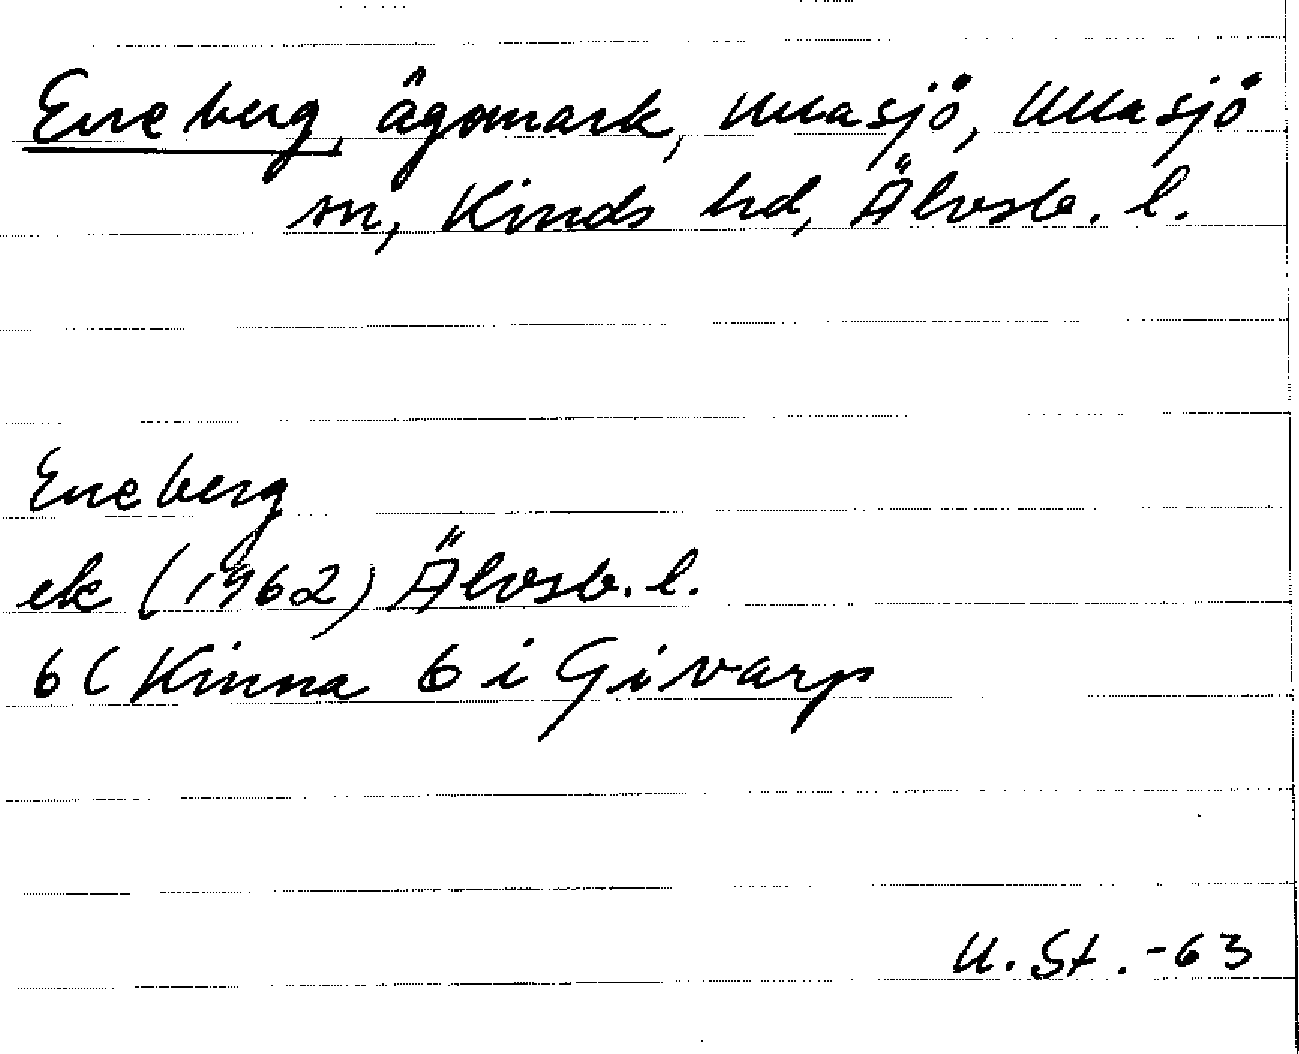 Eneberg, ägomark, Ullasjö, Ullasjö
sn, Kinds hd, Älvsb. l.
Eneberg
ek (1962) Älvsb. l.
6 C Kinna 6 i Givarp
U. St. -63